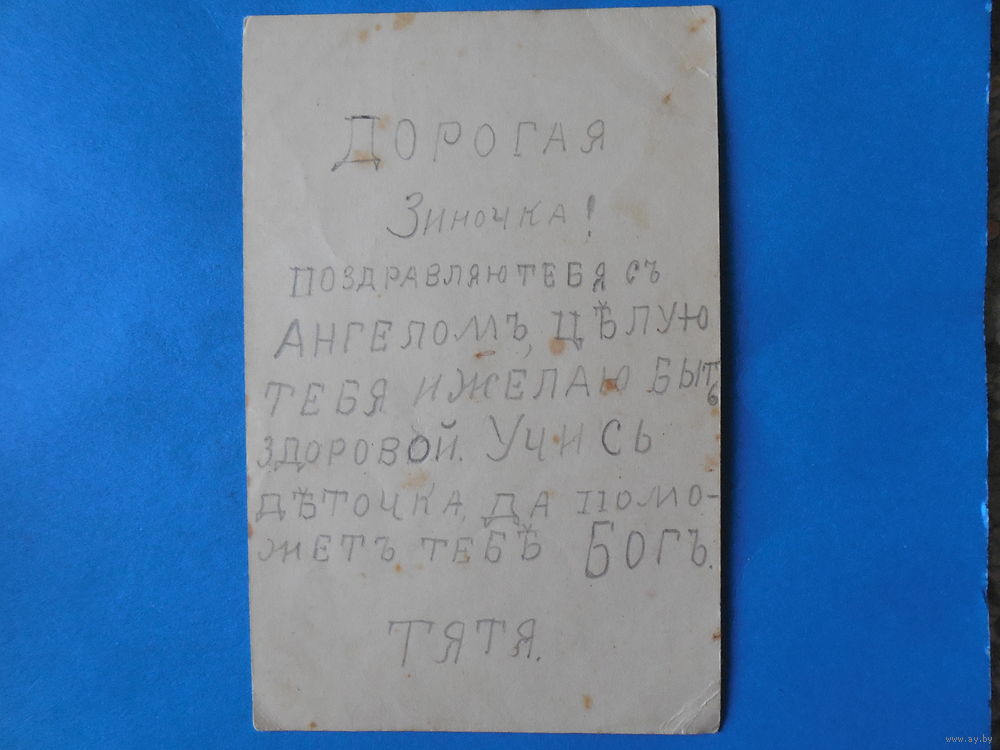 ДОРОГАЯ
Зиночка!
ПОЗДРАВЛЯЮ ТЕБЯ СЪ
АНГЕЛОМЪ, ЦѢЛУЮ
ТЕБЯ И ЖЕЛАЮ БЫТЬ
ЗДОРОВОЙ. УЧИСЬ
ДѢТОЧКА, ДА ПОМО-
ЖЕТЪ ТЕБѢ БОГЪ.
ТЯТЯ.
www.ay.by